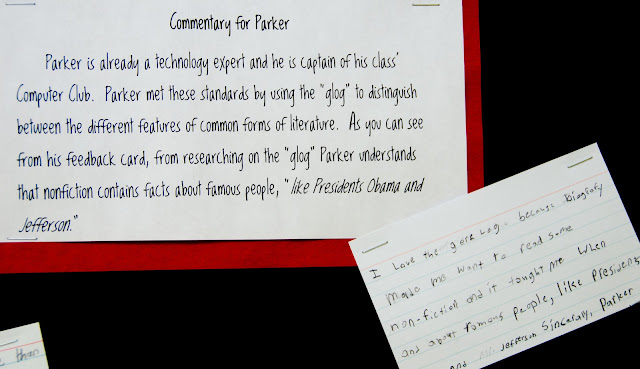 Commentary for Parker
Parker is already a technology expert and he is captain of his class'
Computer Club. Parker met these standards by using the "glog" to distinguish
between the different features of common forms of literature. As you can see
from his feedback card, from researching on the "glog" Parker understands
that nonfiction contains facts about famous people, "like Presidents Obama and
Jefferson."
I Love the because biografy
made me want to read some
non-fiction and it tought me when
and about famous people, like Presidents
and Jefferson Sincerally, Parker
than